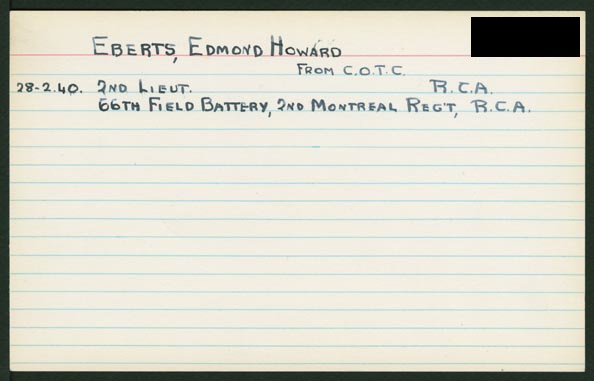 EBERTS, EDMOND HOWARD
FROM C.O.T.C.
28-2.40. 2ND LIEUT. R.C.A.
66TH FIELD BATTERY, 2ND MONTREAL REG'T, R.C.A.